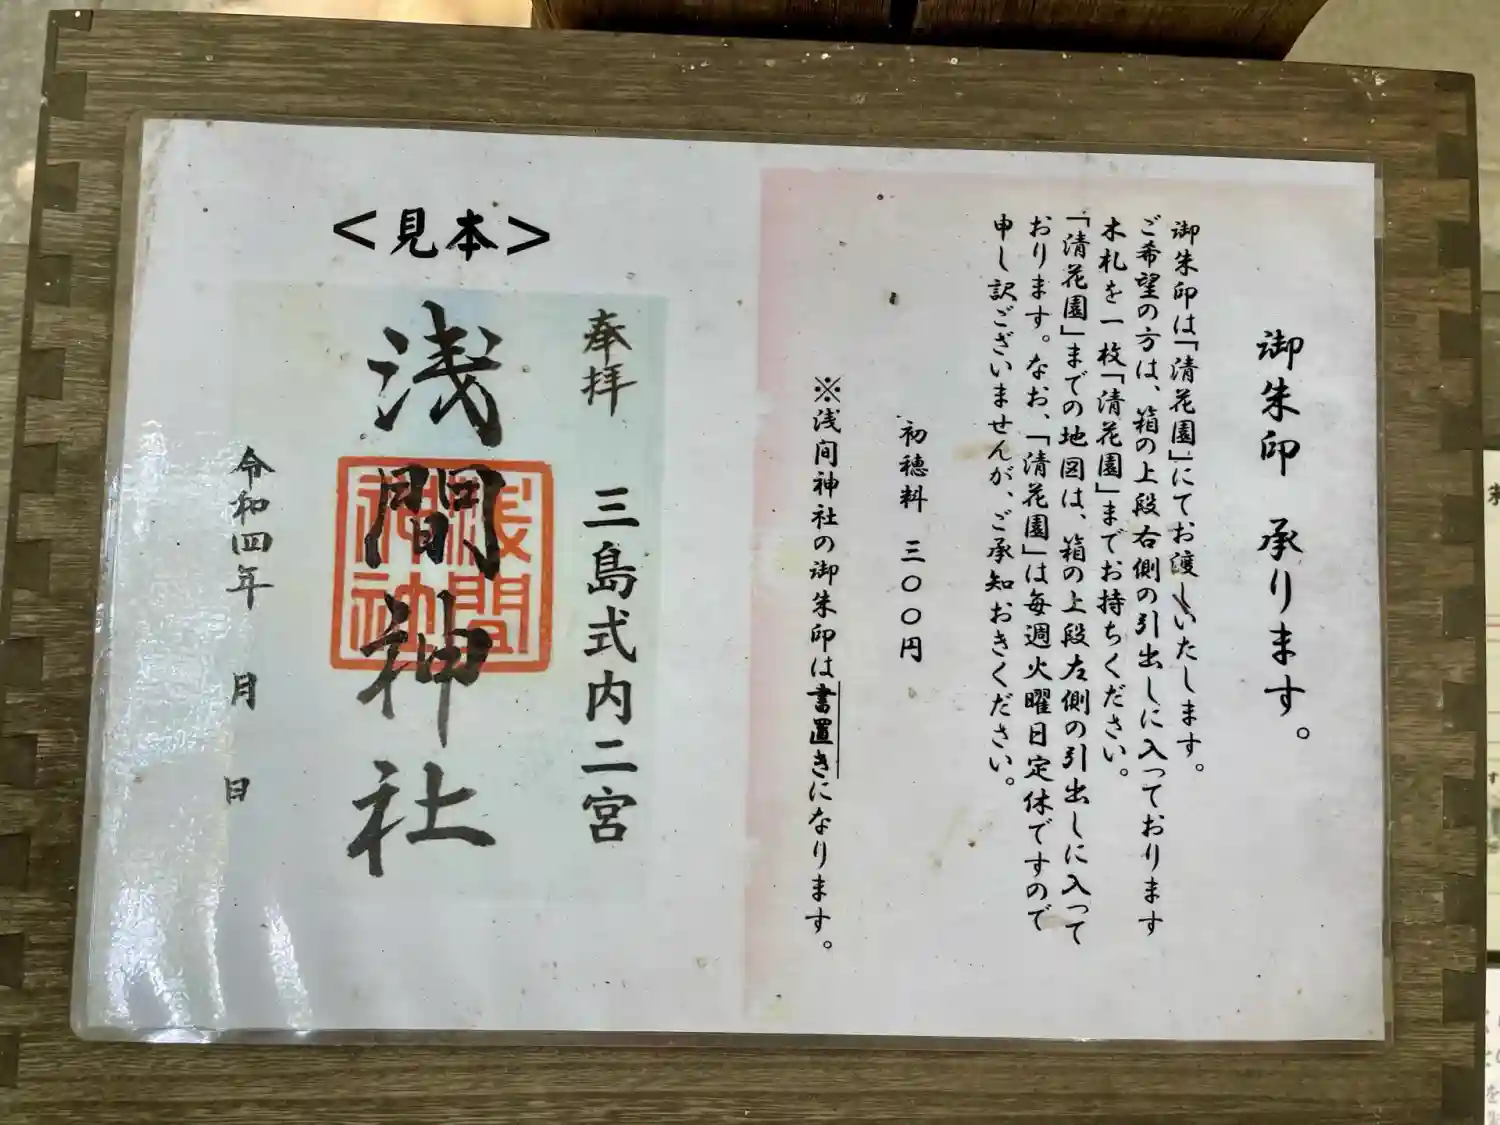 御朱印　承ります。
御朱印は「清花園」にてお渡しいたします。
ご希望の方は、箱の上段右側の引出しに入っております
木札を一枚「清花園」までお持ちください。
「清花園」までの地図は、箱の上段左側の引出しに入って
おります。なお、「清花園」は毎週火曜日定休ですので
申し訳ございませんが、ご承知おきください。
初穂料　三〇〇円
※浅间神社の御朱印は書置きになります。
＜見本＞
奉拝　三島式内二宮
浅間神社
浅間
神社
令和四年　月　日